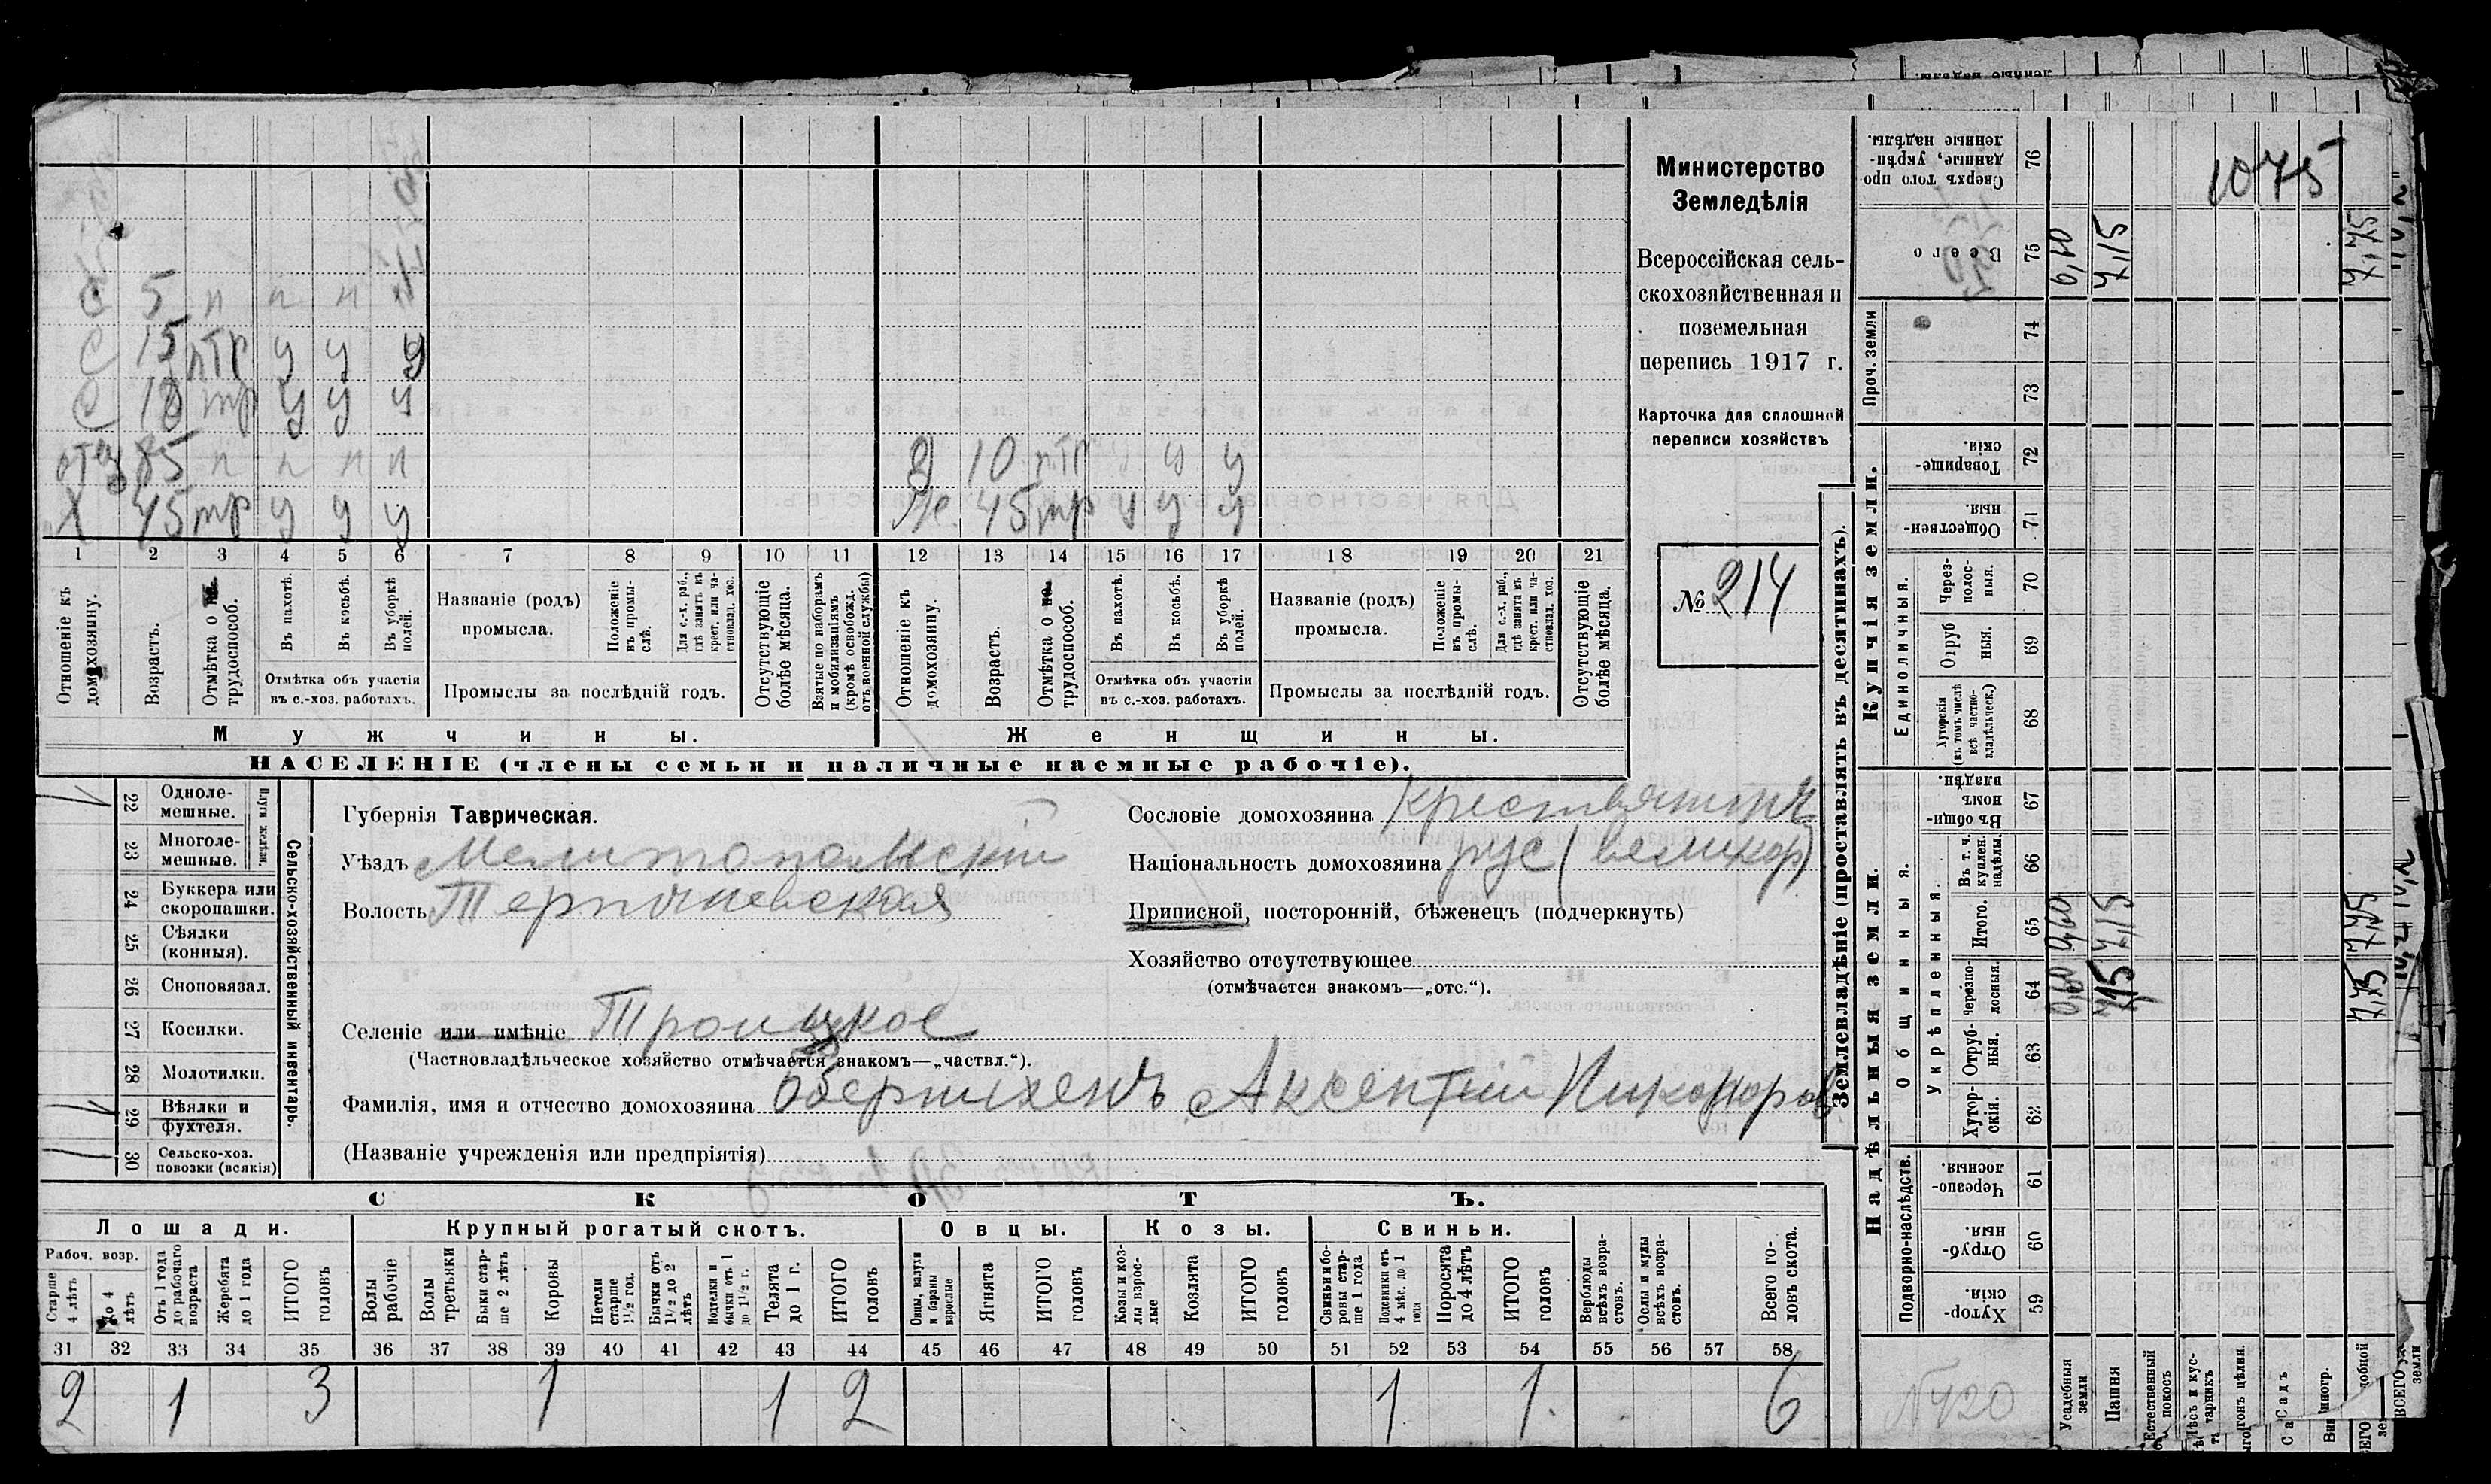 С 5 п п п п
С 15 птр у у у
С 18 тр у у у
отец 85 п п п п
Х 45 тр у у у
д 10 птр у у
Ж 45 тр у у у
1 2 3 4 5 6 7 8 9 10 11 12 13 14 15 16 17 18 19 20 21
Отношеніе къ домохозяину.
Возрастъ.
Отмѣтка о трудоспособ.
Въ пахотѣ.
Въ косьбѣ.
Въ уборкѣ полей.
Отмѣтка объ участіи въ с.-хоз. работахъ.
Названіе (родъ) промысла.
Положеніе въ промыслѣ.
Для с.-х. раб., гдѣ занятъ въ крест. или частновлад. хоз.
Промыслы за послѣдній годъ.
Отсутствующіе болѣе мѣсяца.
Взятые по наборамъ и мобилизаціямъ (кромѣ освобожд. отъ военной службы)
Отношеніе къ домохозяину.
Возрастъ.
Отмѣтка о трудоспособ.
Въ пахотѣ.
Въ косьбѣ.
Въ уборкѣ полей.
Отмѣтка объ участіи въ с.-хоз. работахъ.
Названіе (родъ) промысла.
Положеніе въ промыслѣ.
Для с.-х. раб., гдѣ занята въ крест. или частновлад. хоз.
Промыслы за послѣдній годъ.
Отсутствующіе болѣе мѣсяца.
Мужчины.
Женщины.
НАСЕЛЕНІЕ (члены семьи и наличные наемные рабочіе).
Министерство
Земледѣлія
Всероссійская сель-
скохозяйственная и
поземельная
перепись 1917 г.
Карточка для сплошной
переписи хозяйствъ
№ 214
22 Однолемешные.
23 Многолемешные.
Плуги желѣзн.
24 Буккера или скоропашки.
25 Сѣялки (конныя).
26 Сноповязал.
27 Косилки.
28 Молотилки.
29 Вѣялки и фухтеля.
30 Сельско-хоз. повозки (всякія)
Сельско-хозяйственный инвентарь.
Губернія Таврическая.
Уѣздъ Мелитопольскій
Волость Терпеніевская
Селеніе или имѣніе Троицкое
(Частновладѣльческое хозяйство отмѣчается знакомъ—„частвл.“).
Фамилія, имя и отчество домохозяина Аксентій Никаноров
(Названіе учрежденія или предпріятія)
Сословіе домохозяина Крестьянинъ
Національность домохозяина рус (великор)
Приписной, посторонній, бѣженецъ (подчеркнуть)
Хозяйство отсутствующее
(отмѣчается знакомъ—„отс.“).
СКОТЪ.
Лошади. Крупный рогатый скотъ. Овцы. Козы. Свиньи.
Рабоч. возр.
Старше 4 лѣтъ
До 4 лѣтъ
Отъ 1 года до рабочаго возраста
Жеребята до 1 года
ИТОГО головъ
Волы рабочіе
Волы третьяки
Быки старше 2 лѣтъ
Коровы
Нетели старше 1½ год.
Бычки отъ 1½ до 2 лѣтъ
Подтелки и бычки отъ 1 до 1½ г.
Телята до 1 г.
ИТОГО головъ
Овцы, валухи и бараны взрослые
Ягнята
ИТОГО головъ
Козы и козлы взрослые
Козлята
ИТОГО головъ
Свиньи и бороны старше 1 года
Подсвинки отъ 4 мѣс. до 1 года
Поросята до 4 лѣтъ
ИТОГО головъ
Верблюды всѣхъ возрастовъ.
Ослы и мулы всѣхъ возрастовъ.
Всего головъ скота.
31 32 33 34 35 36 37 38 39 40 41 42 43 44 45 46 47 48 49 50 51 52 53 54 55 56 57 58
2 1 3 1 1 2 1 1 6
Землевладѣніе (проставлять въ десятинахъ).
Купчія земли.
Надѣльныя земли.
Сверхъ того проданные, укрѣпленные надѣлы. 76
1075
Всего 75 7,15 7,75
Проч. земли 74 73
Товарищескія. 72
Общественныя. 71
Единоличныя.
Черезполосныя. 70
Отрубныя. 69
Хуторскія (въ томъ числѣ всѣ частновладѣльческ.) 68
Общинныя.
Въ общинномъ владѣн. 67
Укрѣпленныя.
Въ т. ч. куплен. надѣлы. 66
Итого. 65 7,15 7,75
Черезполосныя. 64 7,15 7,75
Отрубныя. 63
Хуторскія. 62
Подворно-наслѣдств.
Черезполосныя. 61
Отрубныя. 60
Хуторскія. 59
№420
Усадебныя земли
Пашня
Естественный покосъ
Садъ